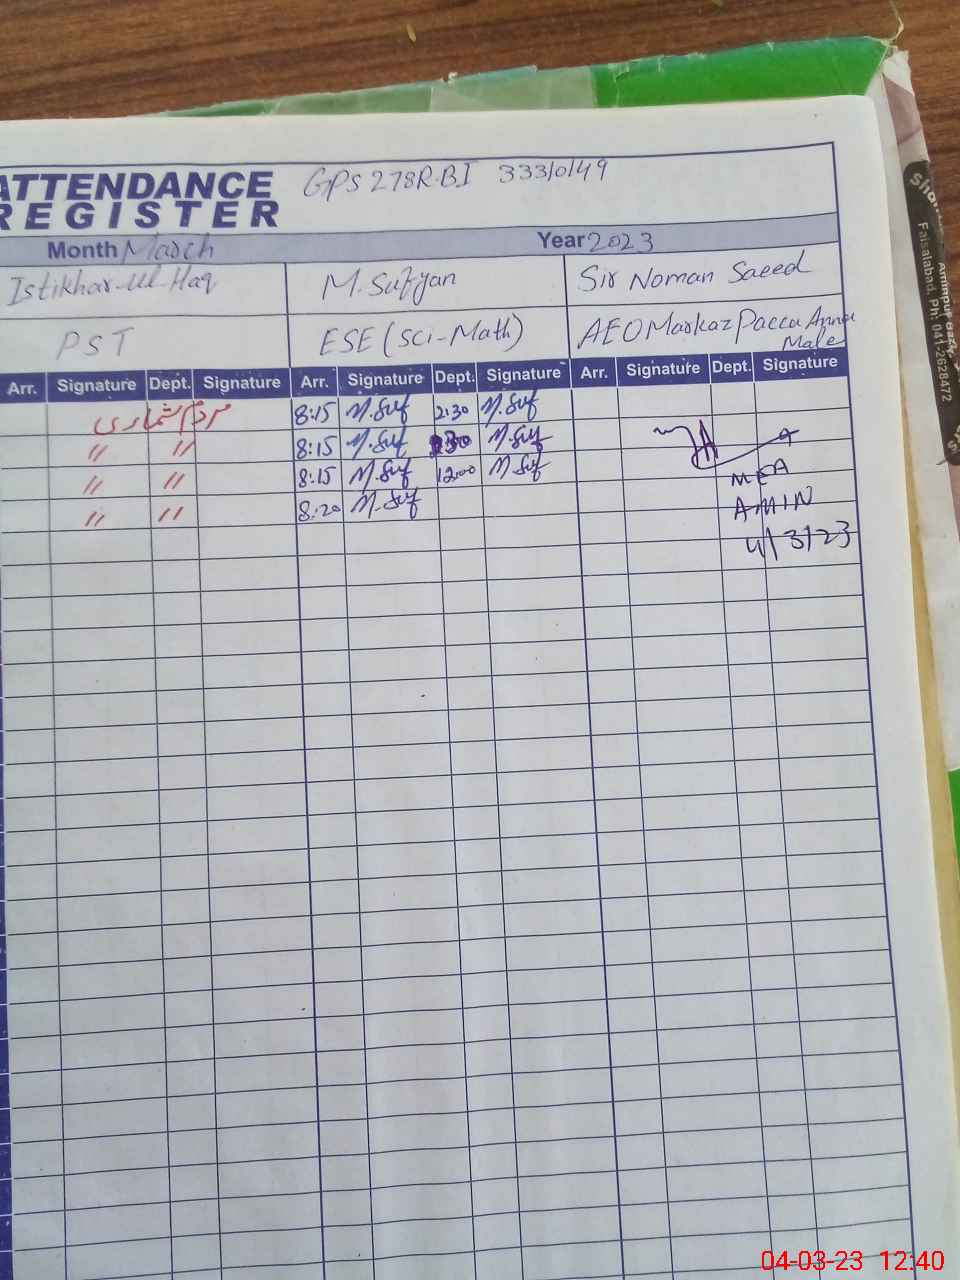 ATTENDANCE GPS 278R.BI 333/0/49
REGISTER
Month March Year 2023
Istikhar-ul-Haq M. Sufyan Sir Noman Saeed
PST ESE (Sci-Math) AEO Markaz Pacca Anna
Male
Arr. Signature Dept. Signature Arr. Signature Dept. Signature Arr. Signature Dept. Signature
مردم شماری 8:15 M.Suf 2:30 M.Suf
" " 8:15 M.Suf M.Suf
" " 8:15 M.Suf 12:00 M.Suf
" " 8:20 M.Suf
MEA
AMIN
4/3/23
Aminpur Baza
Faisalabad, Ph: 041-2628472
04-03-23 12:40